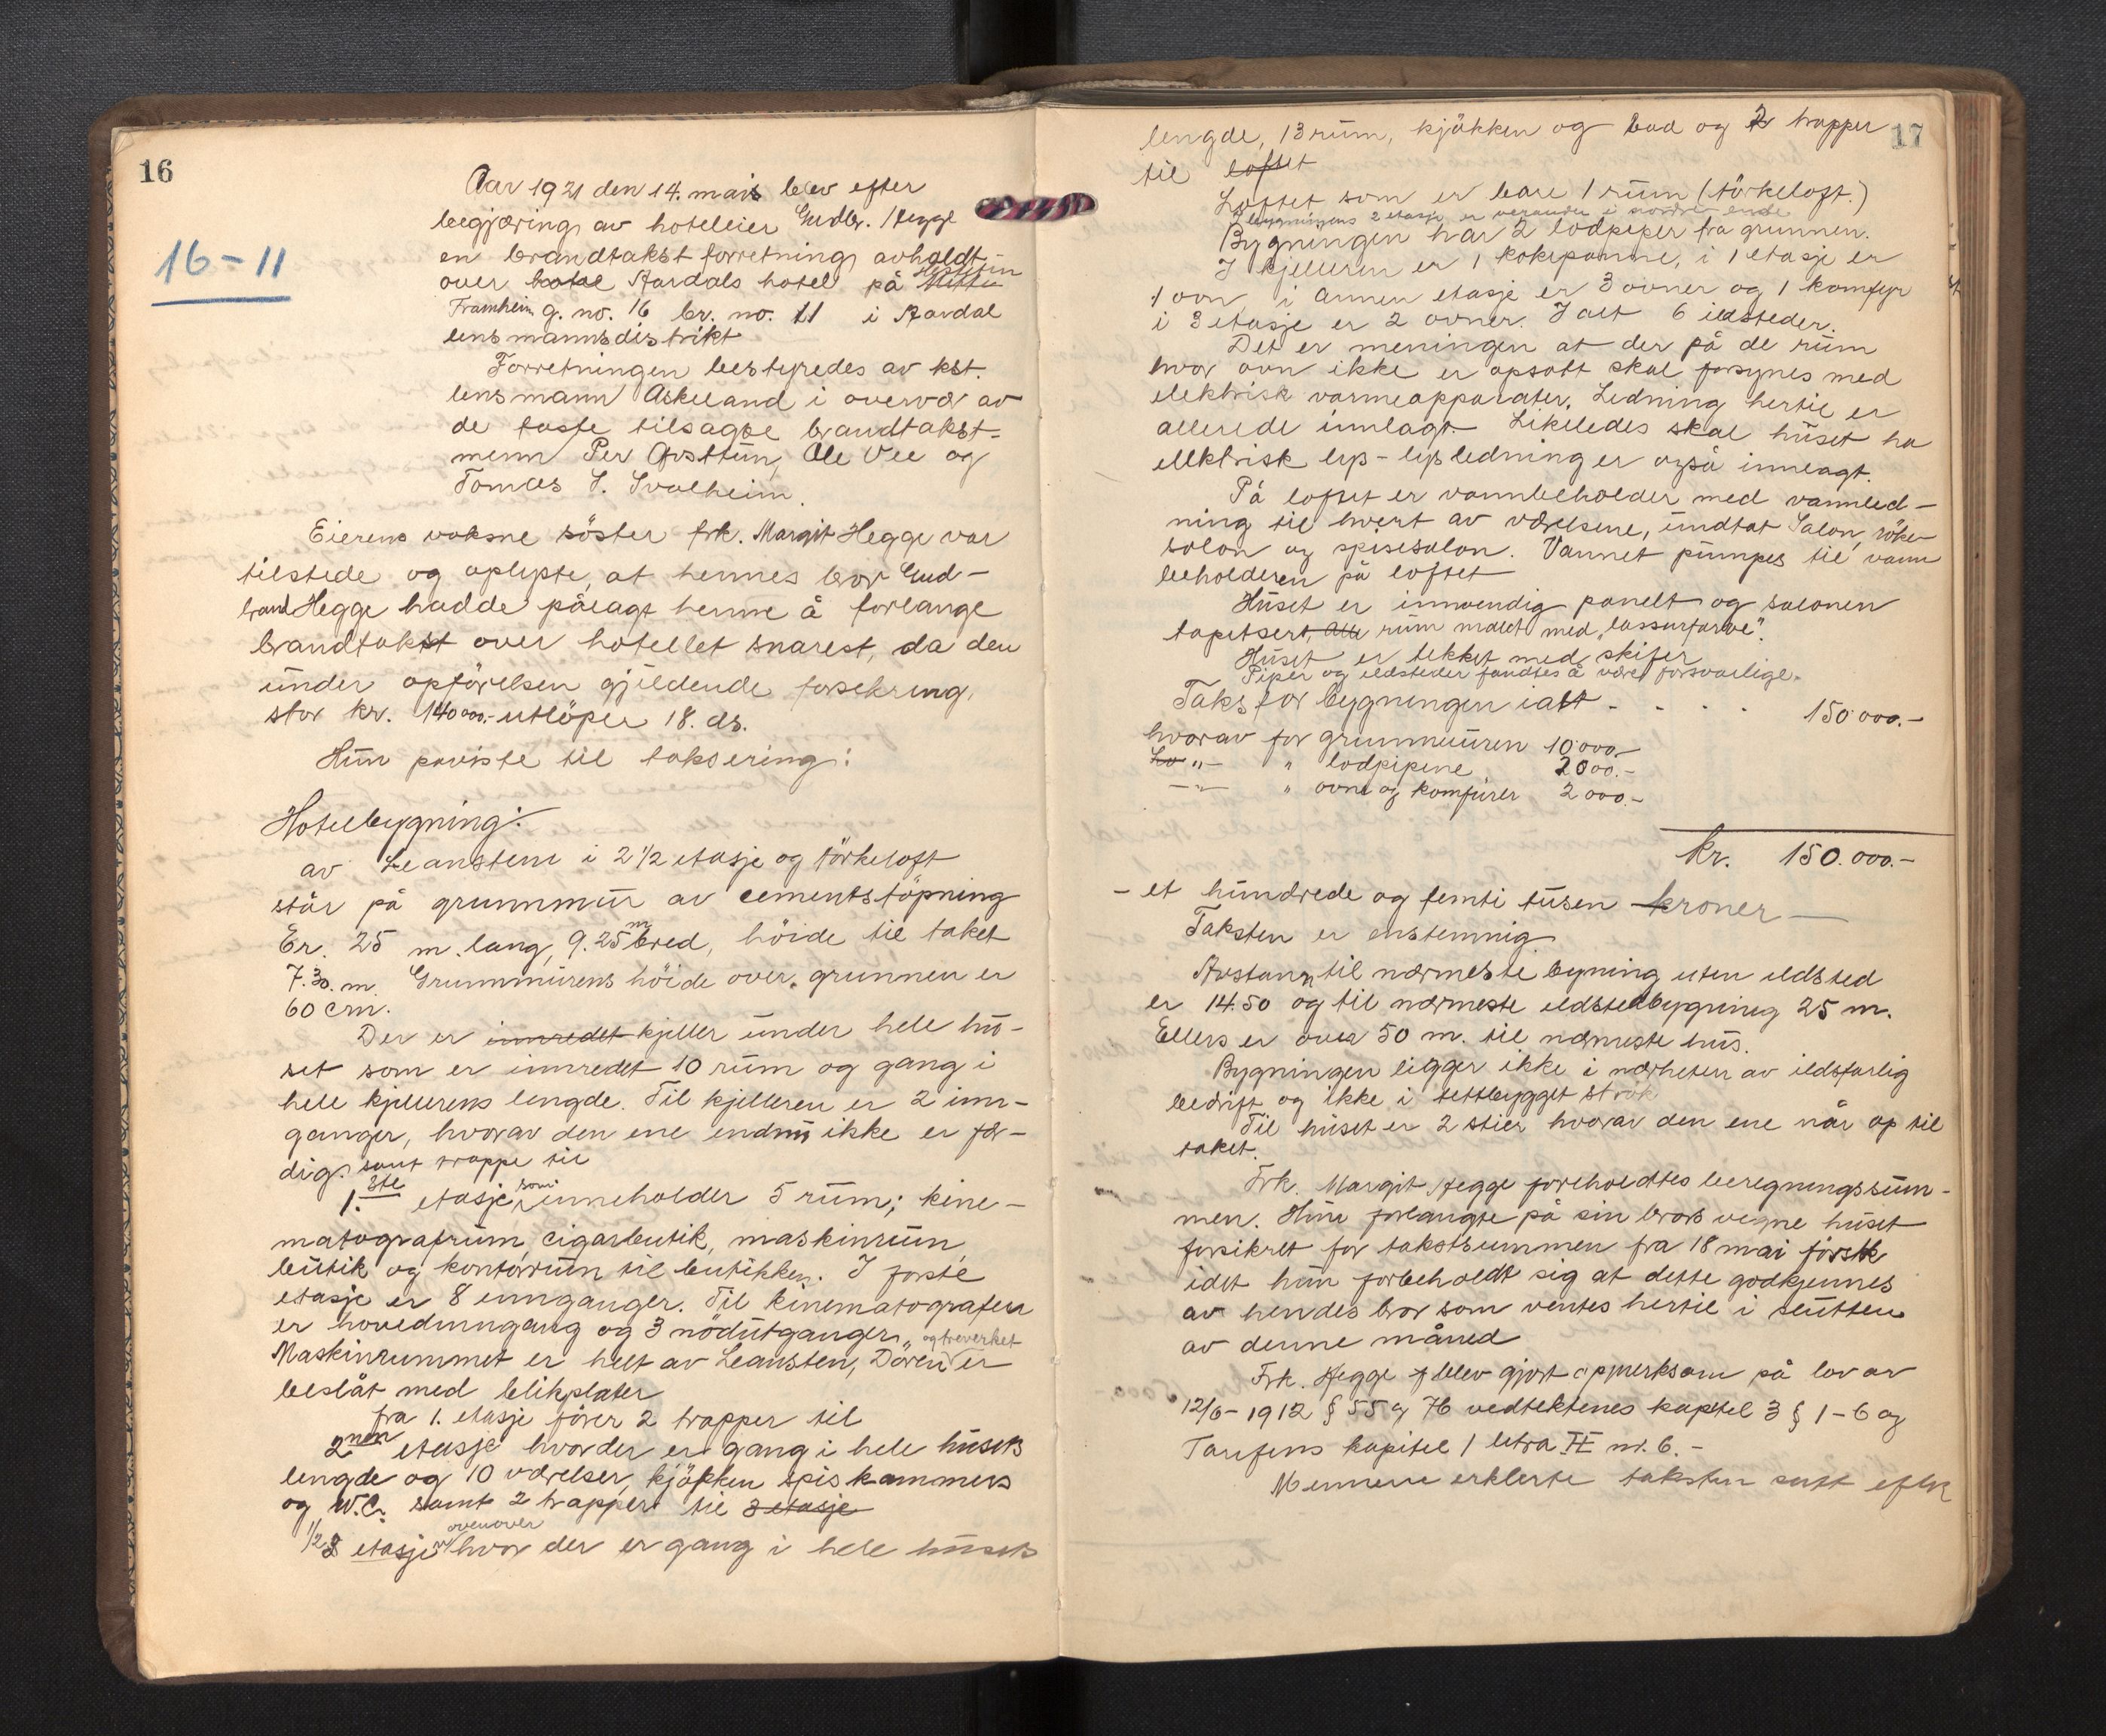 16
16-11
Aar 1921 den 14. mai blev efter
begjæring av hoteleier Gudbr. Hegge
en brandtakst forretning avholdt
over hotel Aardals hotel på
Framheim g. no. 16 br. no. 11 i Aardal
lensmannsdistrikt
Forretningen bestyredes av kst.
lensmann Askeland i overvær av
de faste tilsagte brandtakst-
menn Per Ofsttun, Ole Vee og
Tomas J. Svalheim.
Eierens voksne söster frk. Margit Hegge var
tilstede og oplyste, at hennes bror Gud-
brand Hegge hadde pålagt henne å forlange
brandtakst over hotellet snarest, da den
under opförelsen gjeldende forsekring,
stor kr. 140000.- utlöper 18. ds.
Hun påviste til taksering:
Hotelbygning:
av Leansten i 2 1/2 etasje og törkeloft
står på grunnmur av cementstöpning
Er. 25 m. lang, 9.25 m bred, höide til taket
7.30. m. Grunnmurens höide over grunnen er
60 cm.
Der er innredet kjeller under hele hu-
set som er innredet 10 rum og gang i
hele kjellerens lengde. Til kjelleren er 2 inn-
ganger, hvorav den ene endnu ikke er fær-
dig. samt trappe til
1. ste etasje som inneholder 5 rum; kine-
matografrum, cigarbutik, maskinrum,
butik og kontorrum til butikken. I förste
etasje er 8 innganger. Til kinematografen
er hovedinngang og 3 nödutganger.
Maskinrummet er helt av Leansten, Dören og treverket er
beslåt med blikplater
fra 1. etasje förer 2 trapper til
2nen etasje hvor der er gang i hele husets
lengde og 10 værelser, kjökken spiskammers
og W.C. samt 2 trapper til 3 etasje
1/2 3 etasje ovenover hvor der er gang i hele husets
17
lengde, 13 rum, kjökken og bad og 2 trapper
til loftet
Loftet som er bare 1 rum (törkeloft.)
I bygningens 2 etasje er veranda i nordre ende
Bygningen har 2 lodpiper fra grunnen.
I kjelleren er 1 kokepanne, i 1 etasje er
1 ovn i annen etasje er 3 ovner og 1 komfyr
i 3 etasje er 2 ovner. I alt 6 ildsteder.
Det er meningen at der på de rum
hvor ovn ikke er opsatt skal forsynes med
elektrisk varmeapparater. Ledning hertil er
allerede innlagt. Likeledes skal huset ha
elektrisk lys - lysledning er også innlagt.
På loftet er vannbeholder med vannled-
ning til hvert av værelsene, undtat Salon, röke-
salon og spisesalon. Vannet pumpes til vann
beholderen på loftet
Huset er innvendig panelt og salonen
tapetsert, alle rum malet med „lassurfarve".
Huset er tekket med skifer
Piper og ildsteder fandtes å være forsvarlige.
Takst for bygningen ialt - - - - 150'000.-
hvorav for grunnmuren 10'000.-
-"- " lodpipene 2000.-
-"- " ovne og komfurer 2000.-
kr. 150.000.-
- et hundrede og femti tusen kroner -
Taksten er enstemmig
Avstann til nærmeste bygning uten ildsted
er 14.50 og til nærmeste ildstedbygning 25 m.
Ellers er over 50 m. til nærmeste hus.
Bygningen ligger ikke i nærheten av ildsfarlig
bedrift og ikke i tettbygget strök
Til huset er 2 stier hvorav den ene når op til
taket.
Frk. Margit Hegge foreholdtes beregningssum-
men. Hun forlangte på sin brors vegne huset
forsikret for takstsummen fra 18 mai förstk
idet hun forbeholdt sig at dette godkjennes
av hendes bror som ventes hertil i slutten
av denne måned
Frk. Hegge blev gjort opmerksom på lov av
12/6-1912 § 55 og 76 vedtektenes kapitel 3 § 1-6 og
Tarifens kapitel 1 letra II nr. 6.-
Mennene erklerte taksten satt efter